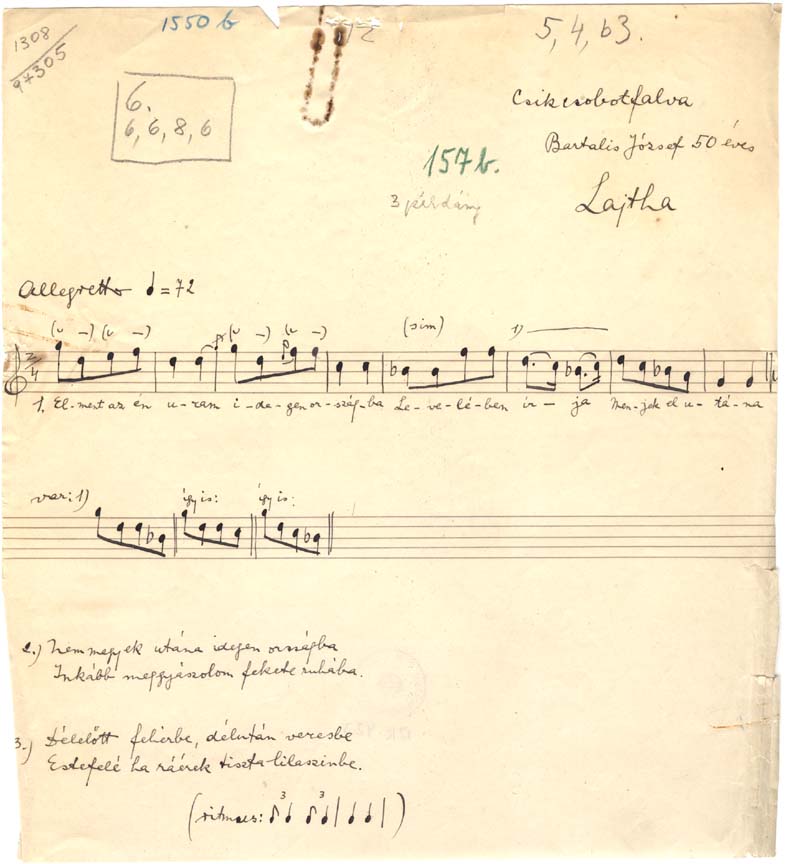 1308
97305
1550 b
12
5, 4, b3.
6.
6, 6, 8, 6
Csikcsobotfalva
Bartalis József 50 éves
157 b.
3 példány
Lajtha
Allegretto ♩ = 72
(∪ –) (∪ –) (∪ –) (∪ –) (sim) 1)
2/4
1. El-ment az én u-ram i-de-gen or-szág-ba Le-ve-lé-ben ir-ja Men-jek el u-tá-na
var: 1) így is: így is:
2.) Nem megyek utána idegen országba
Inkább meggyászolom fekete ruhába.
3.) Délelőtt fehérbe, délután veresbe
Estefelé ha ráérek tiszta lilaszinbe.
(ritmus: ♪♩ ♪♩ | ♩ ♩ | )
3 3